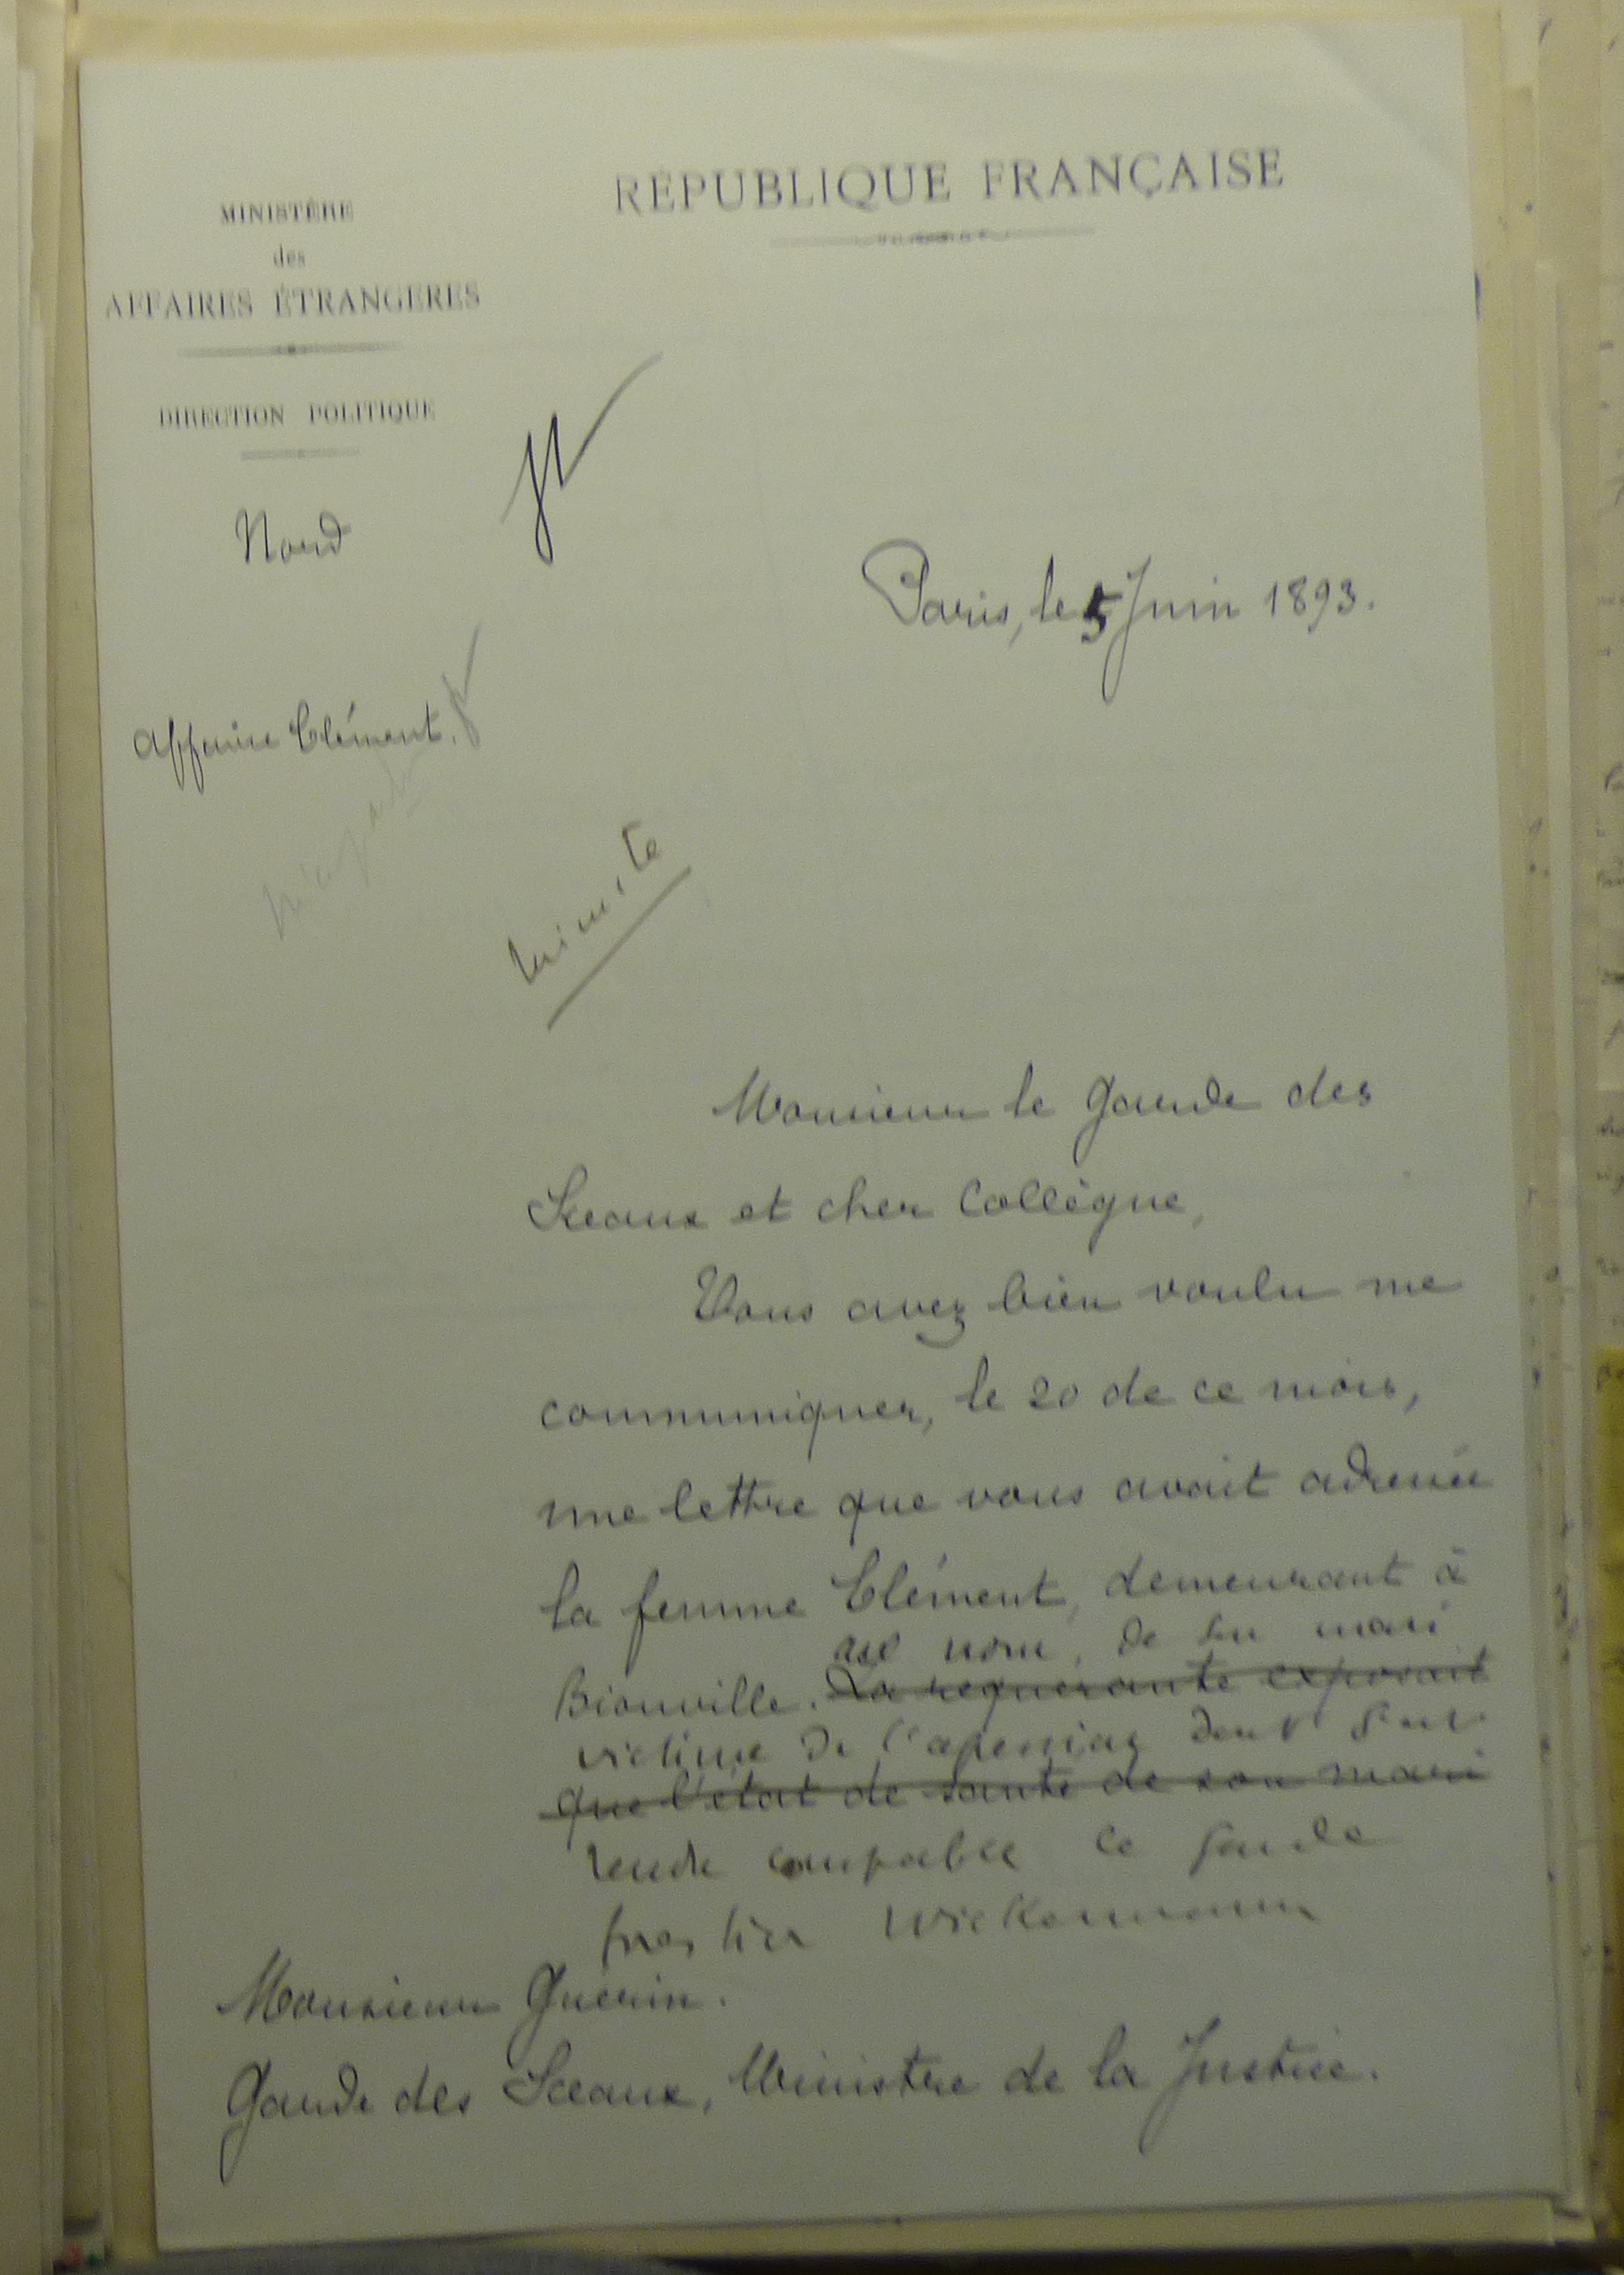 RÉPUBLIQUE FRANÇAISE
MINISTÈRE
des
AFFAIRES ÉTRANGÈRES
DIRECTION POLITIQUE
Nord
Paris, le 5 Juin 1893.
Affaire Clément.
Minute
Monsieur le Garde des
Sceaux et cher Collègue,
Vous avez bien voulu me
communiquer, le 20 de ce mois,
une lettre que vous avait adressée
la femme Clément, demeurant à
au nom de son mari
Bionville. La requérante exposait
victime de l'agression dont s'est
que l'état de santé de son mari
rendu coupable le garde
forestier Wickenmann
Monsieur Guérin.
Garde des Sceaux, Ministre de la Justice.